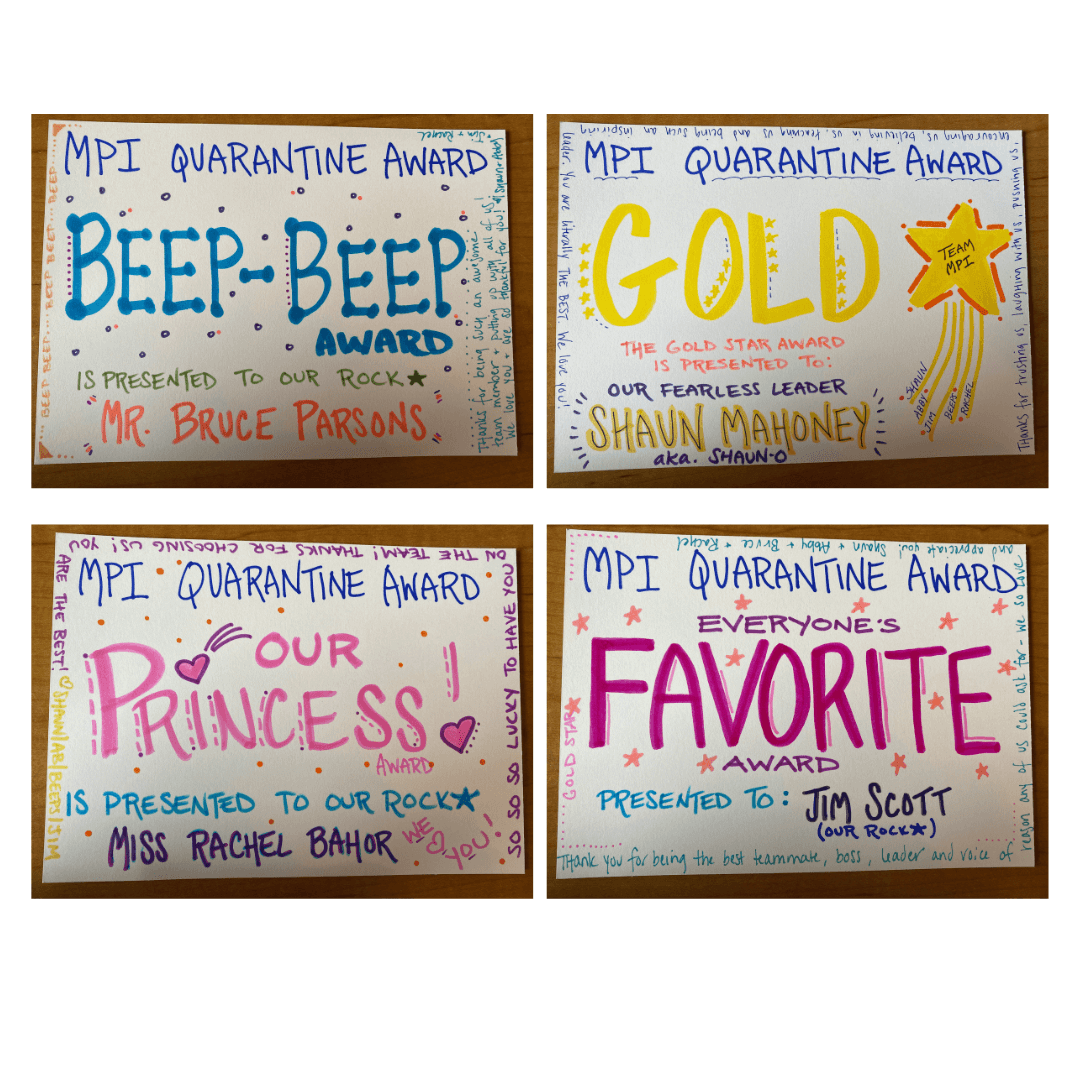 MPI QUARANTINE AWARD
BEEP-BEEP
AWARD
IS PRESENTED TO OUR ROCK★
MR. BRUCE PARSONS
BEEP BEEP... BEEP BEEP... BEEP BEEP BEEP... BEEP
Thanks for being such an awesome
team member + putting up with all of us!
We love you + are so thankful for you! Shawn + Abby
Jim + Rachel
MPI QUARANTINE AWARD
GOLD
TEAM
MPI
THE GOLD STAR AWARD
IS PRESENTED TO:
OUR FEARLESS LEADER
SHAUN MAHONEY
aka. SHAUN-O
SHAUN
ABBY
JIM
BEEPS
RACHEL
Thanks for trusting us, laughing with us, pushing us,
encouraging us, believing in us, teaching us and being such an inspiring
leader. You are literally THE BEST. We love you!
MPI QUARANTINE AWARD
OUR
PRINCESS!
AWARD
IS PRESENTED TO OUR ROCK★
MISS RACHEL BAHOR
WE ♡ YOU!
SO SO SO LUCKY TO HAVE YOU
ON THE TEAM! THANKS FOR CHOOSING US! YOU
ARE THE BEST!
♡SHAWN/AB/BEEPS/JIM
MPI QUARANTINE AWARD
EVERYONE'S
FAVORITE
AWARD
PRESENTED TO: JIM SCOTT
(OUR ROCK★)
GOLD STAR
Thank you for being the best teammate, boss, leader and voice of
reason any of us could ask for. We so love
and appreciate you! Shawn + Abby + Bruce + Rachel